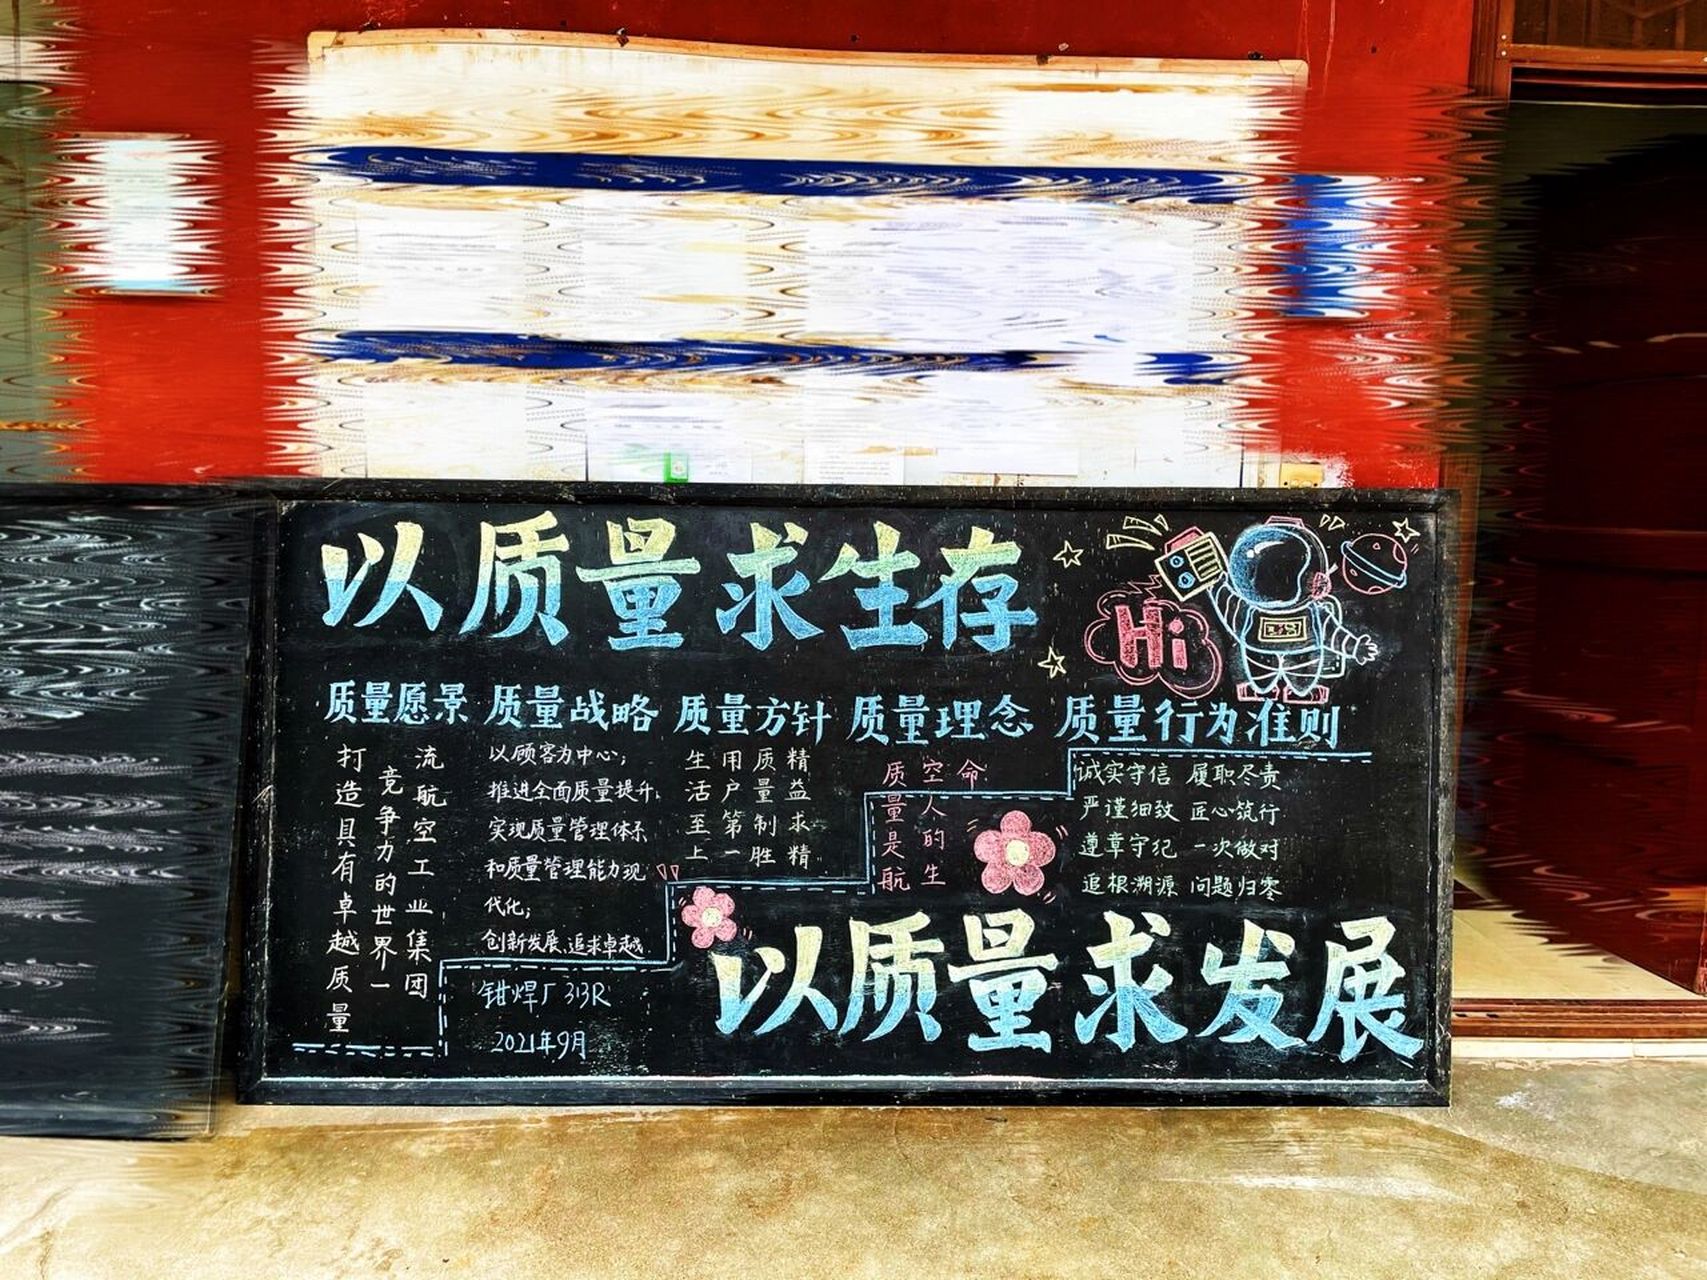 以质量求生存
Hi
质量愿景
打造具有卓越质量
竞争力的世界一
流航空工业集团
质量战略
以顾客为中心;
推进全面质量提升,
实现质量管理体系
和质量管理能力现
代化;
创新发展、追求卓越
质量方针
生活至上
用户第一
质量制胜
精益求精
质量理念
质量是航
空人的生
命
质量行为准则
诚实守信 履职尽责
严谨细致 匠心筑行
遵章守纪 一次做对
追根溯源 问题归零
以质量求发展
钳焊厂 313R
2021年9月